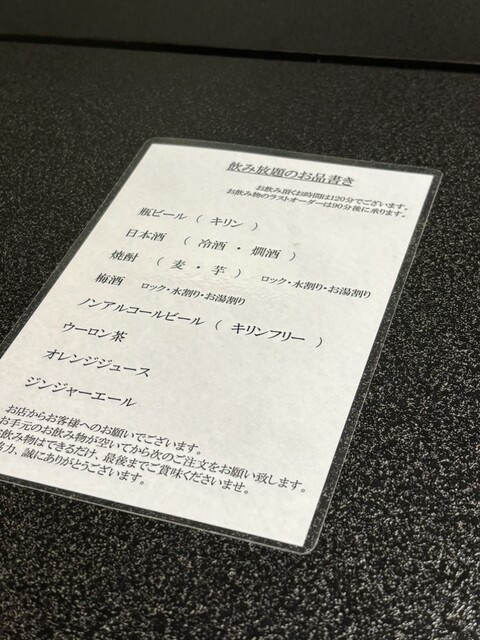 飲み放題のお品書き
お飲み頂くお時間は120分でございます。
お飲み物のラストオーダーは90分後に承ります。
瓶ビール（ キリン ）
日本酒 （ 冷酒 ・ 燗酒 ）
焼酎 （ 麦 ・ 芋 ） ロック・水割り・お湯割り
梅酒 ロック・水割り・お湯割り
ノンアルコールビール（ キリンフリー ）
ウーロン茶
オレンジジュース
ジンジャーエール
お店からお客様へのお願いでございます。
お手元のお飲み物が空いてから次のご注文をお願い致します。
お飲み物はできるだけ、最後までご賞味くださいませ。
力、誠にありがとうございます。